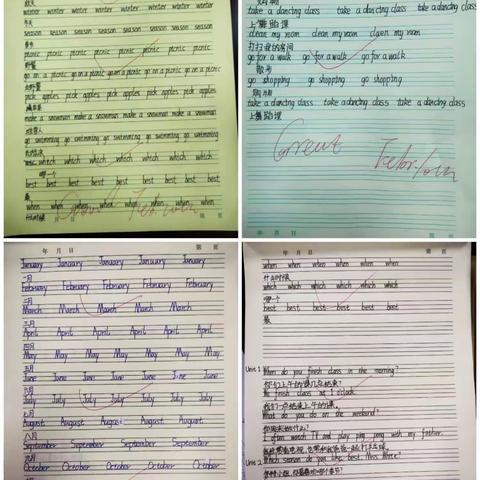 秋天
winter winter winter winter winter winter winter
冬天
season season season season season season season
季节
picnic picnic picnic picnic picnic picnic
野餐
go on a picnic go on a picnic go on a picnic go on a picnic
去野餐
pick apples pick apples pick apples pick apples
摘苹果
make a snowman make a snowman make a snowman make a snowman
堆雪人
go swimming go swimming go swimming go swimming
去游泳
which which which which which which
哪一个
best best best best best best best
最
when when when when when when when
什么时候
Good Feb.
购物
take a dancing class take a dancing class take a dancing class
上舞蹈课
clean my room clean my room claen my room
打扫我的房间
go for a walk go for a walk go for a walk
散步
go shopping go shopping go shopping
购物
take a dancing class take a dancing class take a dancing class
上舞蹈课
Great
Feb.
年 月 日 第 页
January January January January January
一月
February February February February February
二月
March March March March March
三月
April April April April April
四月
May May May May May May
五月
June June June June June June
六月
July July July July July July
七月
August August August August August
八月
September September September September
九月
October October October October October
年 月 日 第 页
when when when when when when
什么时候
which which which which which which
哪一个
best best best best best best
最
Unit 1 When do you finish class in the morning?
你们上午的课几点结束?
We finish class at 1 o'clock.
我们一点结束上午的课。
What do you do on the weekend?
你周末做什么?
I often watch TV and play ping-pong with my father.
我经常看电视,也常和我爸爸一起打乒乓球。
Unit 2 Which season do you like best, Miss White?